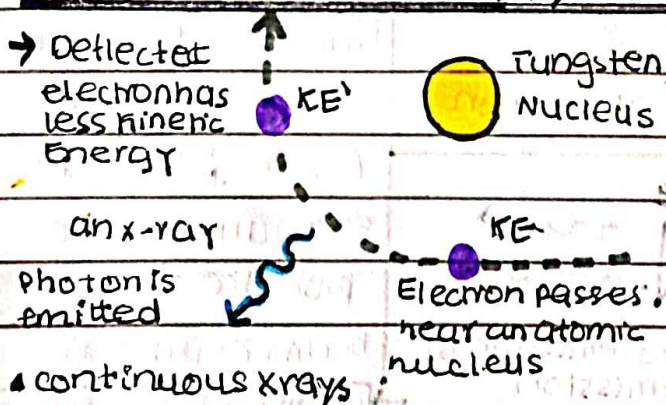 → Deflected
electron has
less kinetic
Energy
KE'
Tungsten
Nucleus
an x-ray
Photon is
emitted
KE
Electron passes
near an atomic
nucleus
▲ continuous xrays